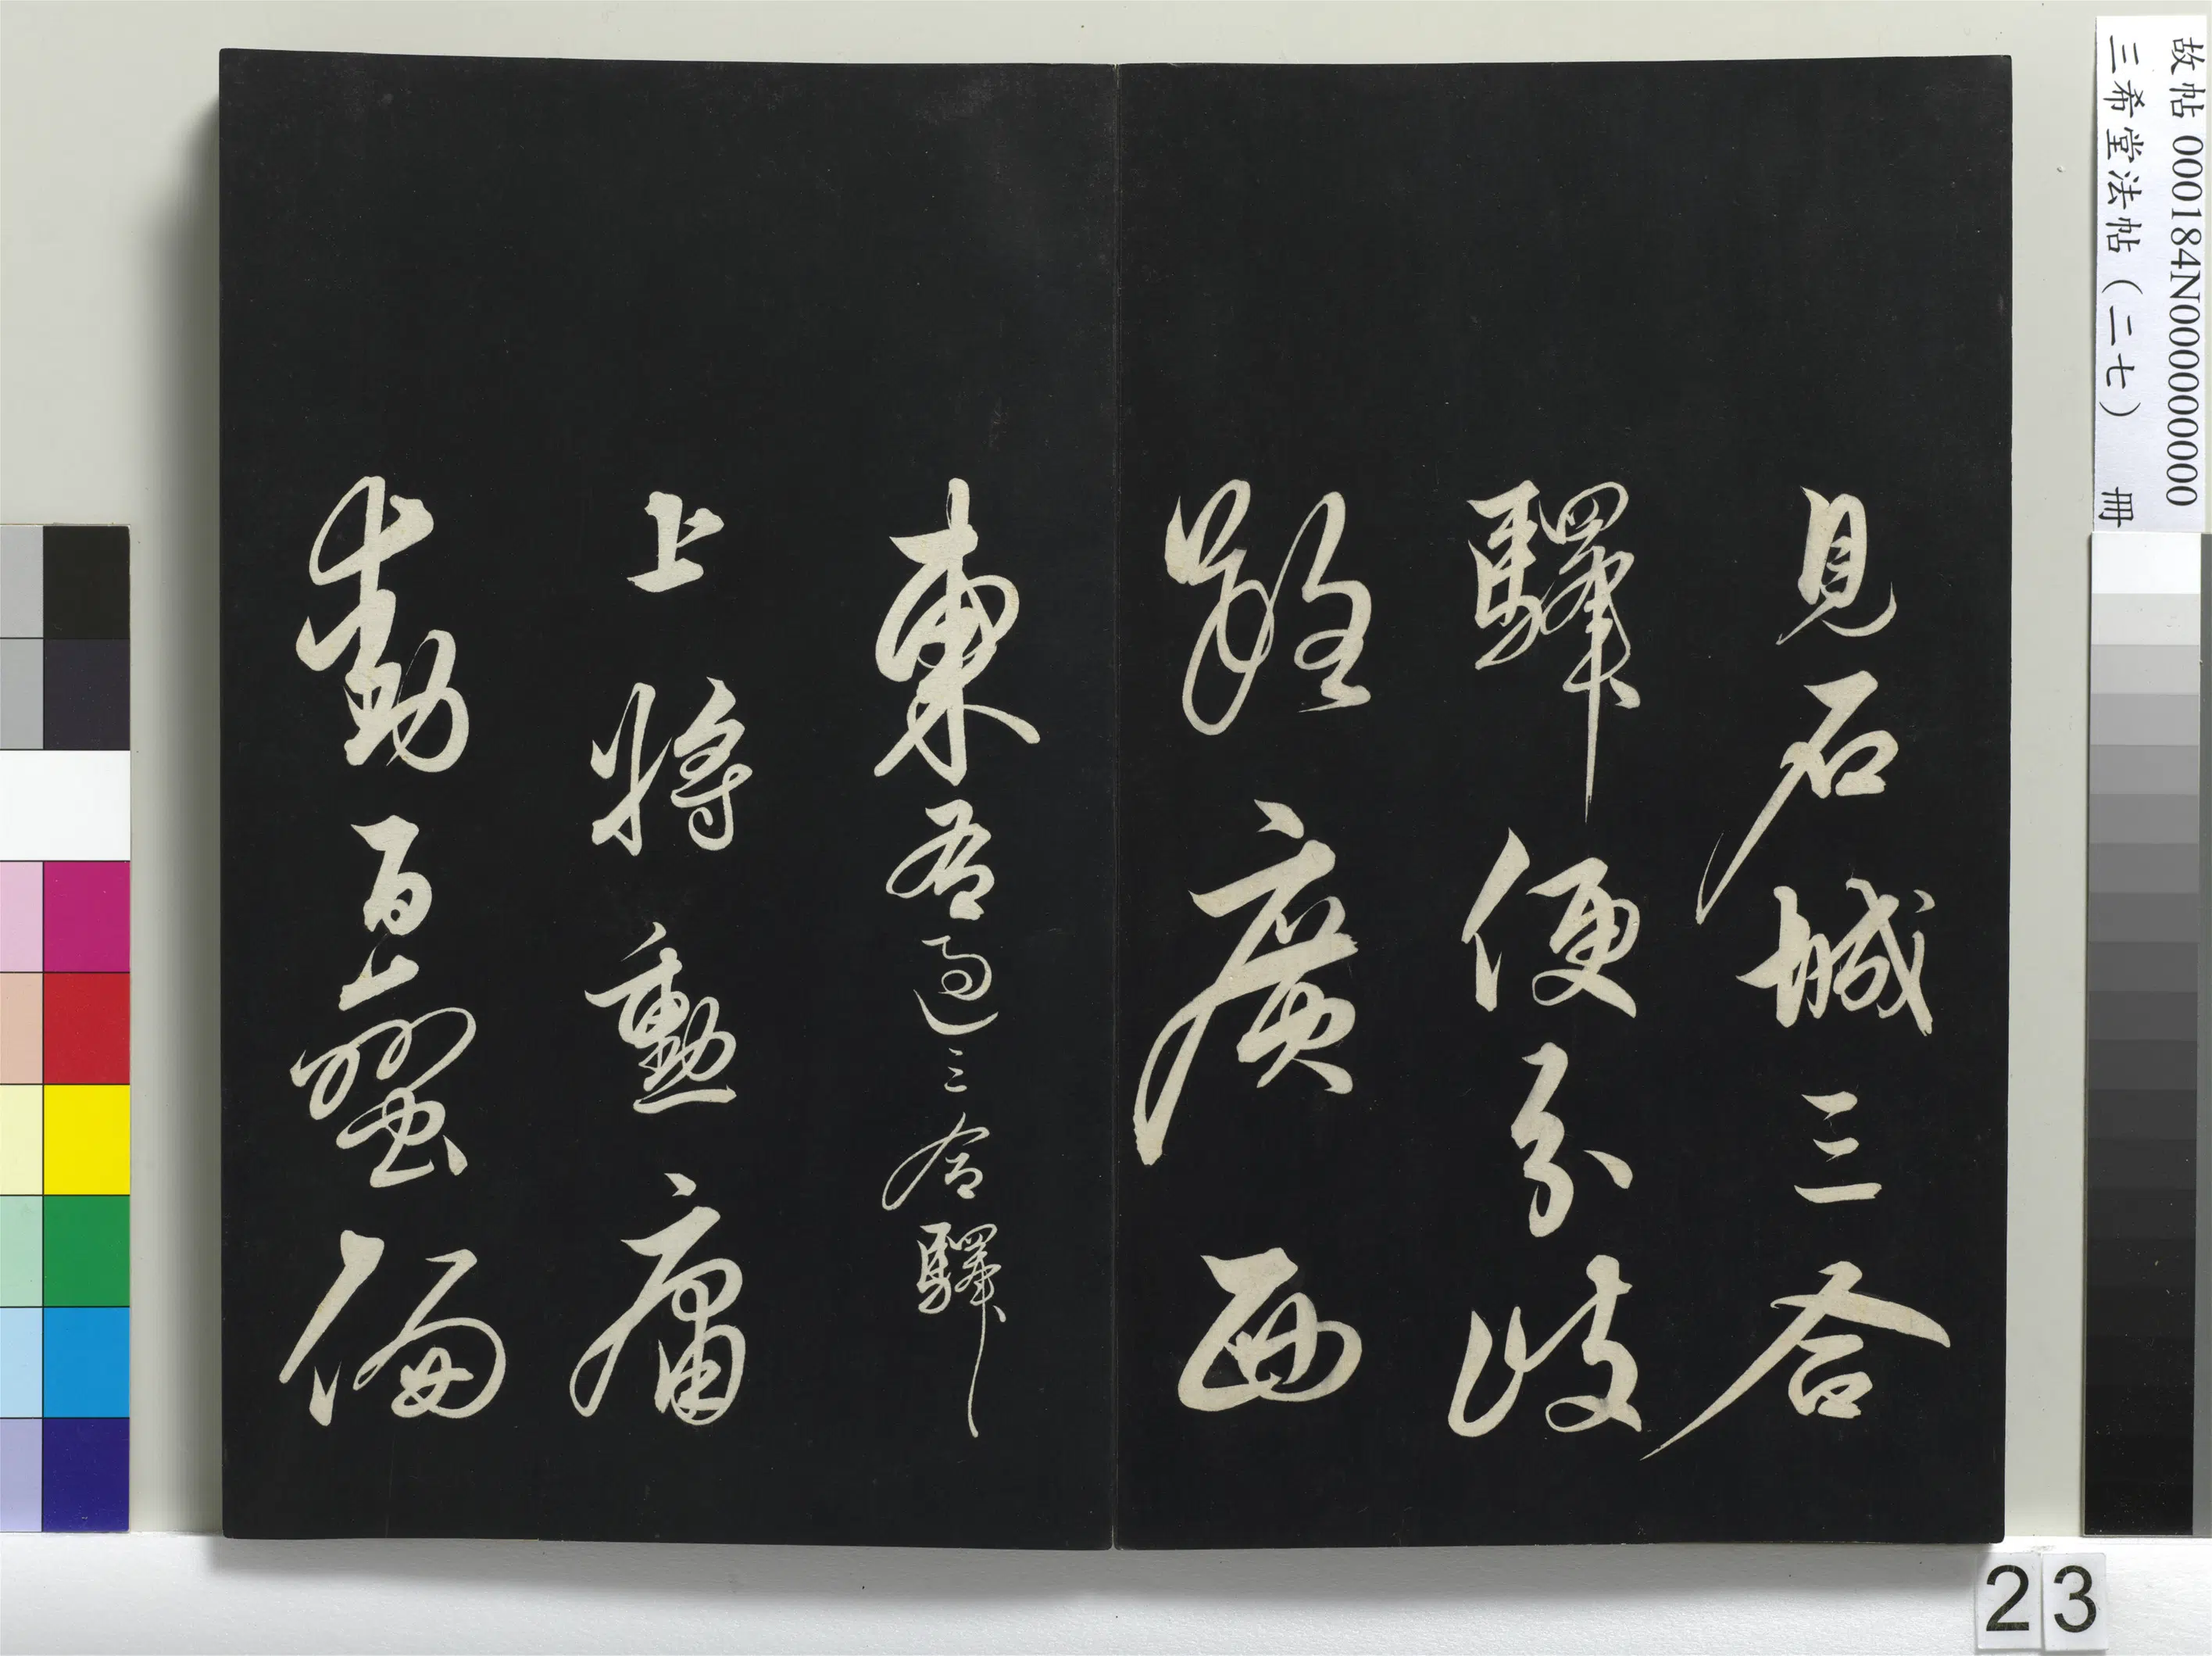 故帖 000184N000000000
三希堂法帖（二七） 冊
見石城三合
驛便分岐
路廣西
東右過三合驛
上將勳庸
動百蠻偏
23